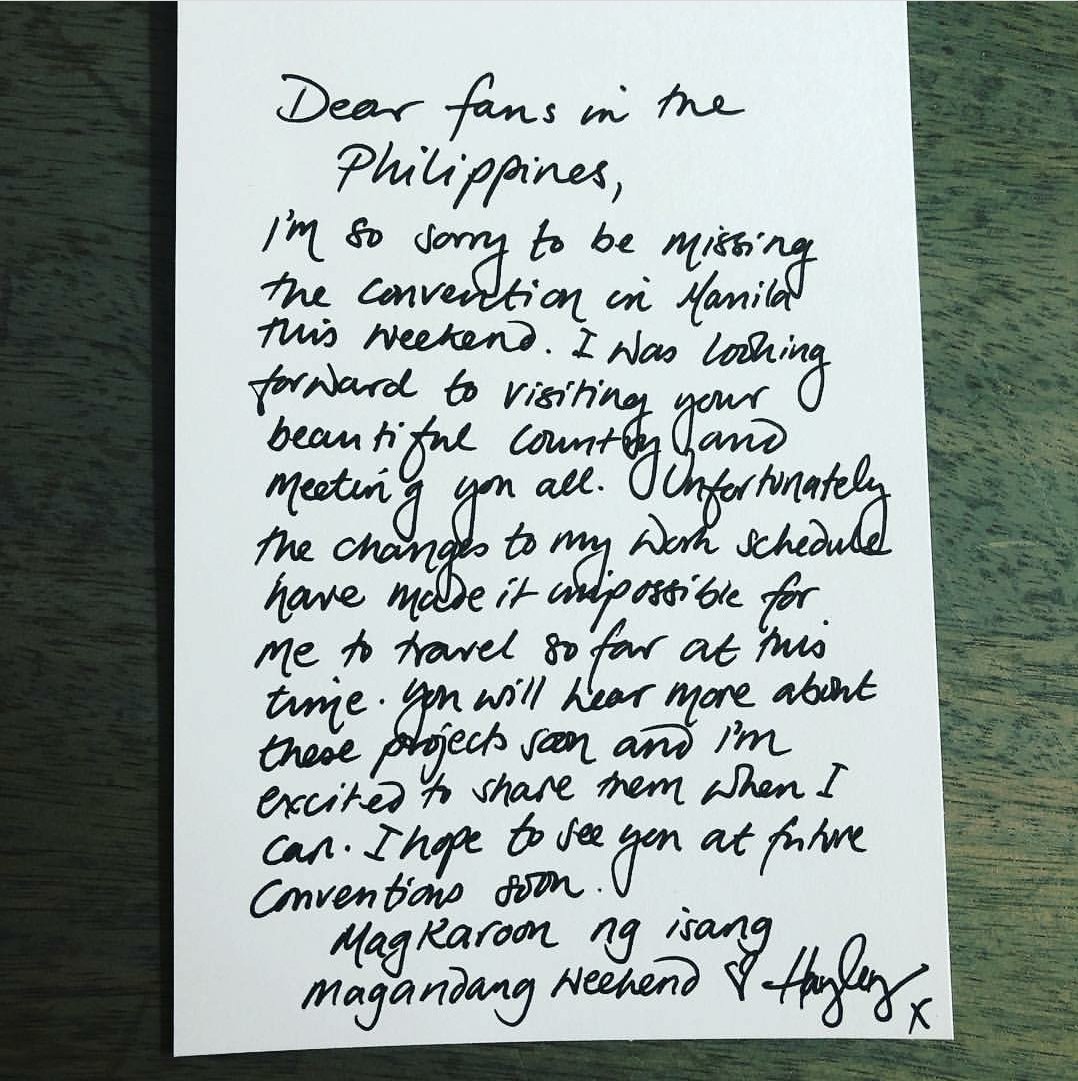 Dear fans in the
Philippines,
I'm so sorry to be missing
the convention in Manila
this weekend. I was looking
forward to visiting your
beautiful country and
meeting you all. Unfortunately
the changes to my work schedule
have made it impossible for
me to travel so far at this
time. You will hear more about
these projects soon and I'm
excited to share them when I
can. I hope to see you at future
conventions soon.
Magkaroon ng isang
magandang weekend ♡ Hayley
x